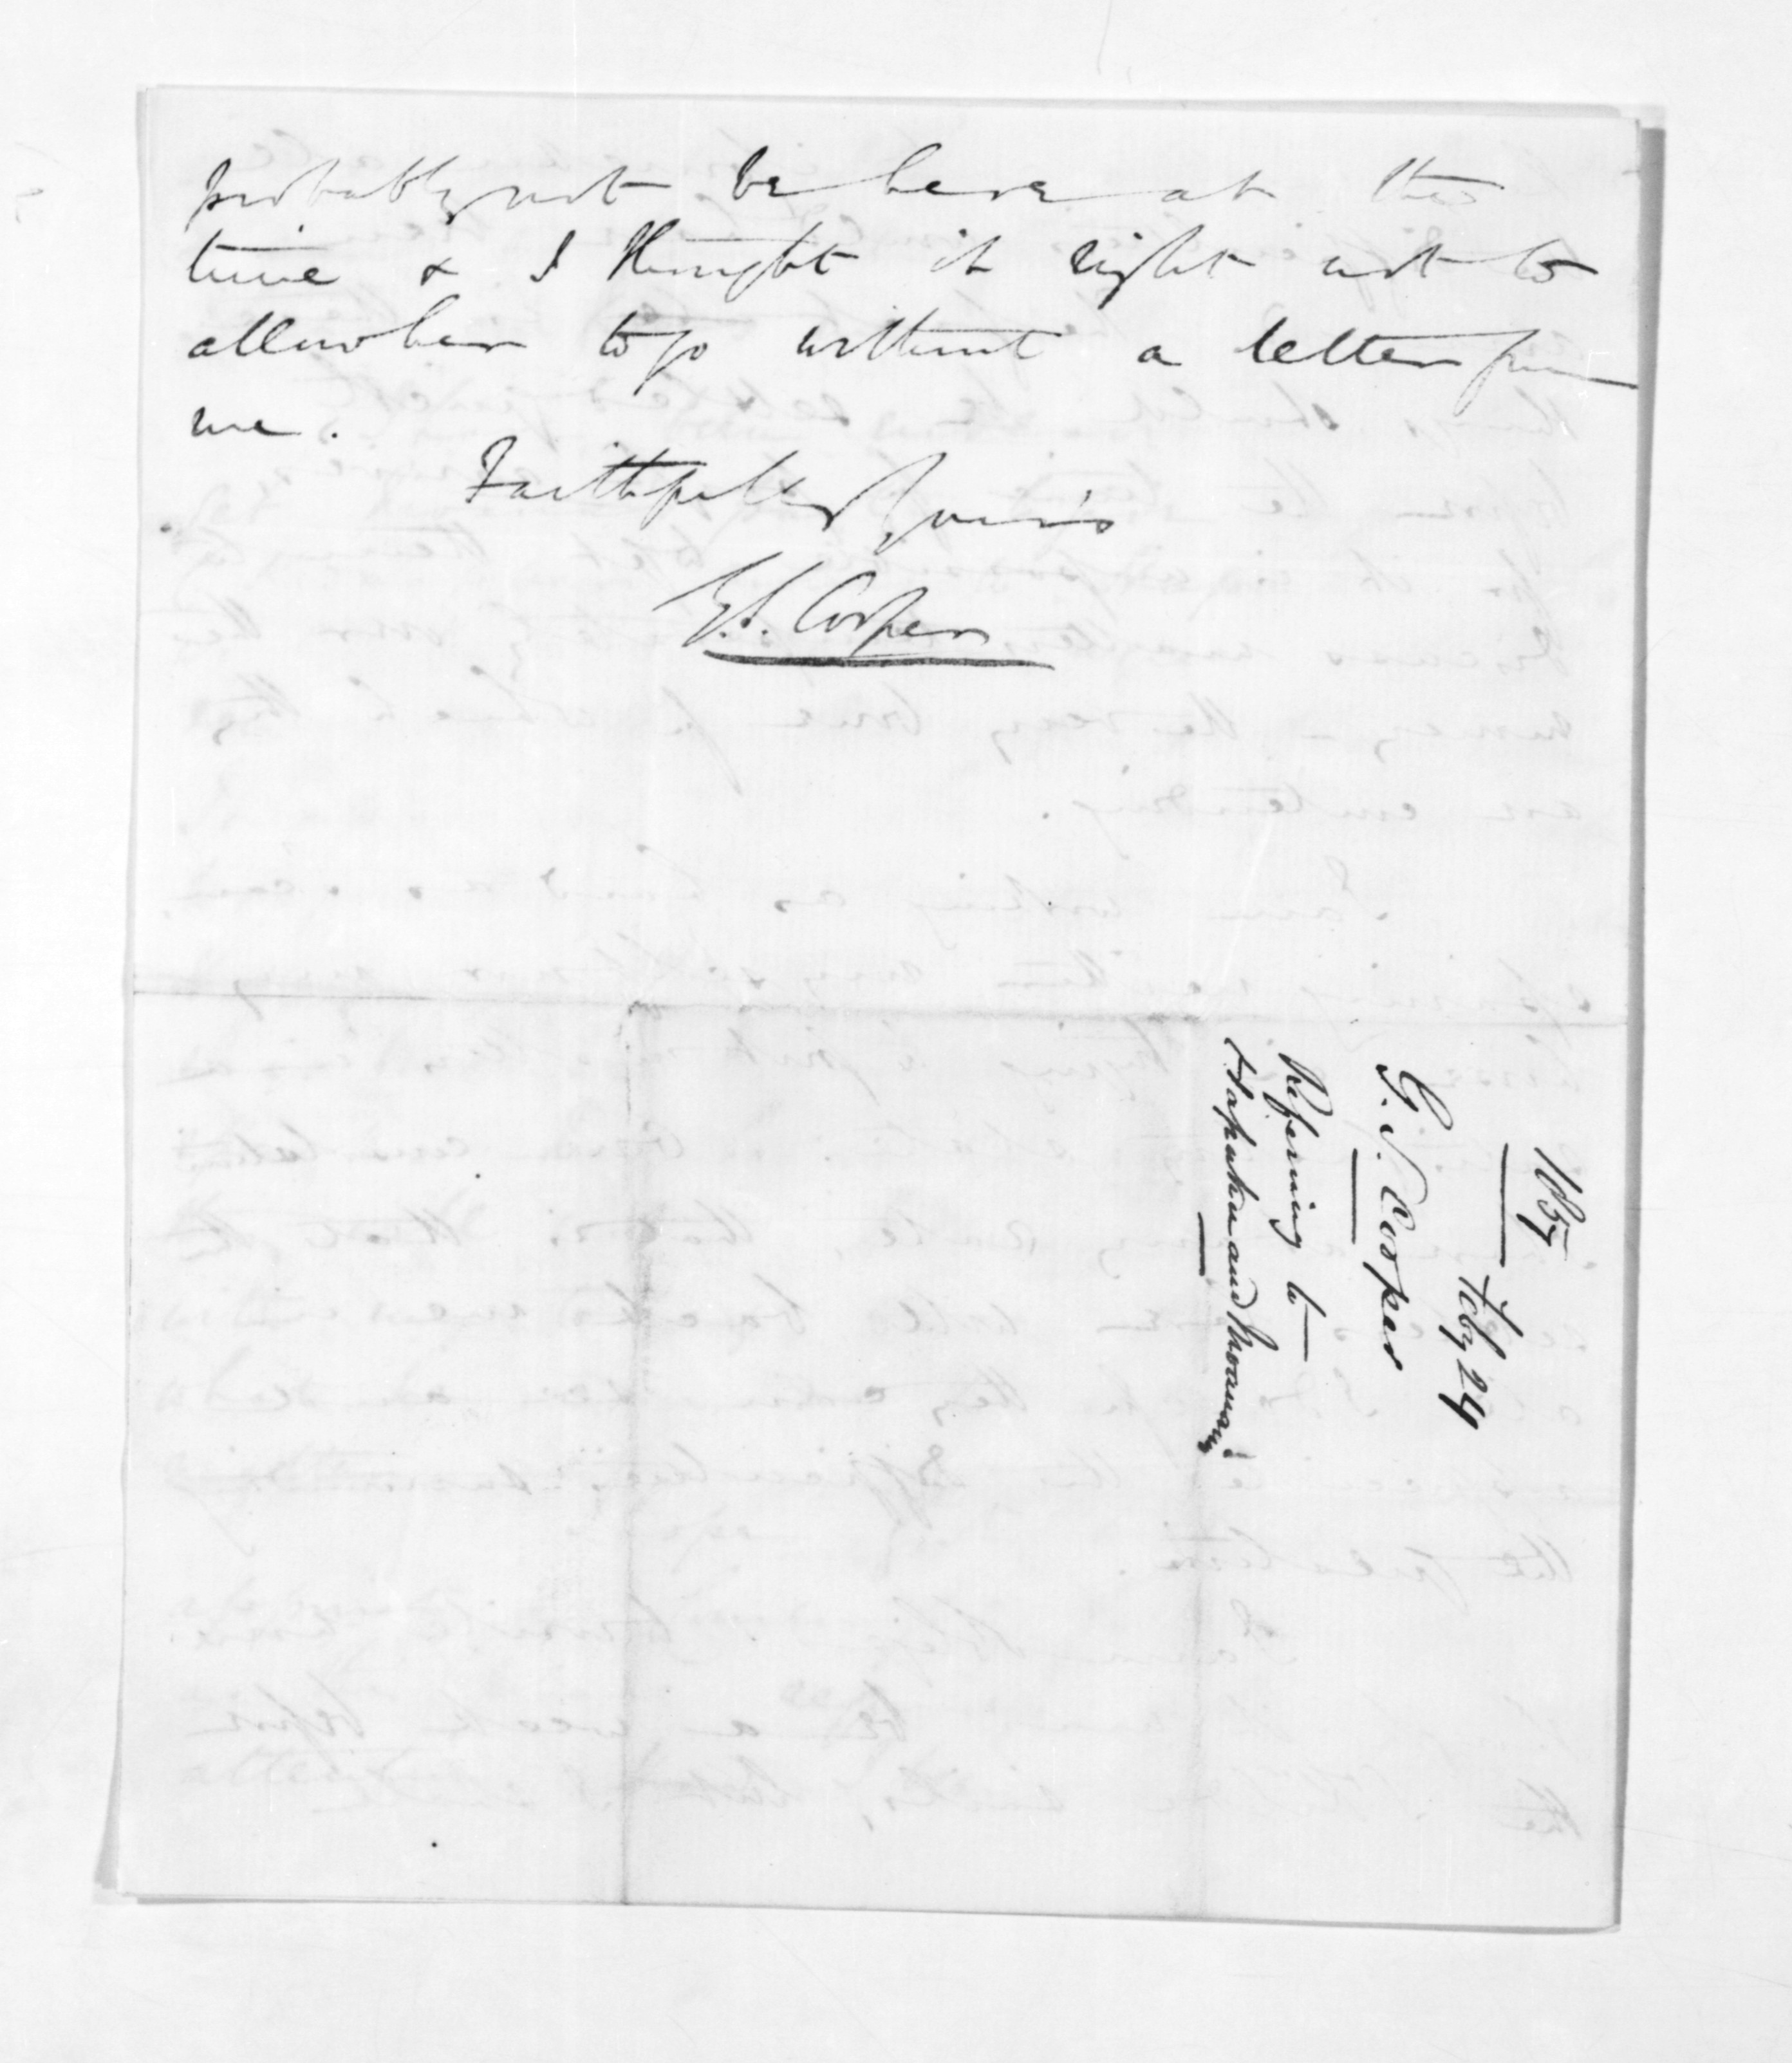 probably not be here at the
time & I thought it right not to
allow her to go without a letter from
me.
Faithfully yours
G.S. Cooper
1857
Feby 24
G.S. Cooper
Referring to
Hapuku and Moananui